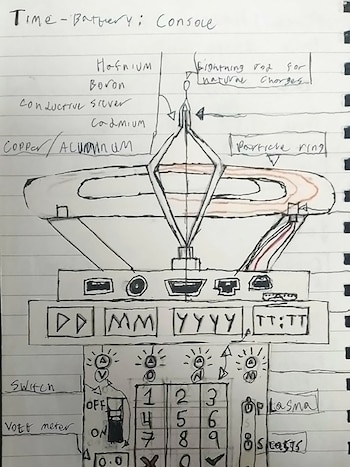 Time-Battery: Console
Hafnium
Boron
Conductive silver
Cadmium
Copper/Aluminum
Lightning rod for
natural charges
Particle ring
DD MM YYYY TT:TT
Switch
OFF
ON
Volt meter
0.0
1 2 3
4 5 6
7 8 9
X 0 ✓
Plasma